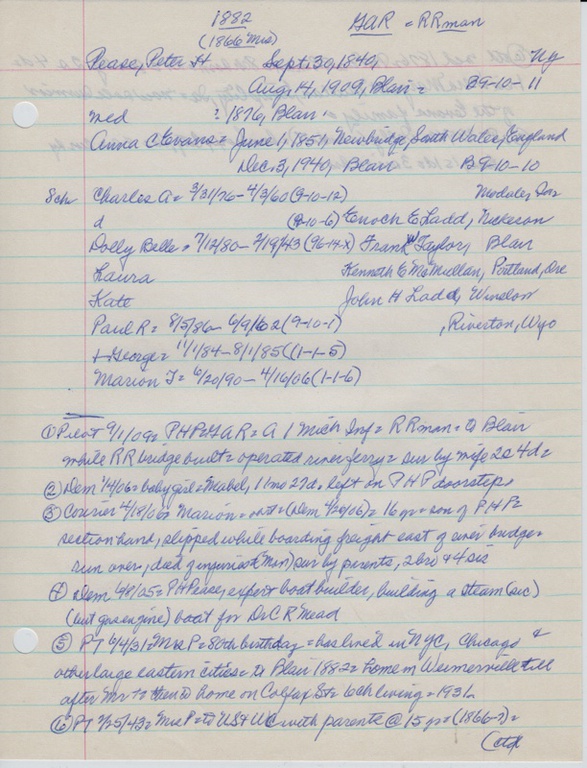 1882 GAR = RRman
(1866 Mis)
Pease, Peter H Sept. 30, 1840, Ny
Aug, 14, 1909, Blair = B9-10-11
med : 1876, Blair
Anna C Evans = June 1, 1851, Newbridge, South Wales, England
Dec. 3, 1940, Blair B9-10-10
8ch Charles A = 3/31/76 - 4/3/60 (9-10-12) Modale, Iowa
d (9-10-6) Enoch E Ladd, Nickerson
Dolly Belle = 7/12/80 - 2/19/43 (96-14-x) Frank W Taylor, Blair
Laura Kenneth C McMullan, Portland, Ore
Kate John H Ladd, Winslow
Paul R = 8/5/86 - 6/9/62 (9-10-1) , Riverton, Wyo
+ George = 11/1/84 - 8/1/85 ((1-1-5)
Marion T = 6/20/90 - 4/16/06 (1-1-6)
① Pilot 9/1/09 = PHP = GAR = A 1 Mich Inf = RRman = to Blair
while RR bridge built = operated river ferry = sur by wife 2s 4d =
② Dem /4/06 = baby girl = Mabel, 11 mo 27d, left on PHP doorstep
③ Courier 4/19/06 Marion = (Dem 4/20/06) = 16 yr = son of PHP =
section hand, slipped while boarding freight east of river bridge =
run over, died of injuries (Mon) sur by parents, 2 bro + 4 sis
④ Dem /05 = PH Pease, expert boat builder, building a steam (sic)
(but gas engine) boat for Dr C R Mead
⑤ PT 6/4/31 = Mrs P = 80th birthday = has lived in NYC, Chicago &
other large eastern cities = to Blair 1882 = home in Weimerville till
after Mr to then to home on Colfax St = 6ch living = 1931
⑥ PT 2/25/43 = Mrs P = to US & WC with parents @ 15 yr = (1866-7) =
(ctd